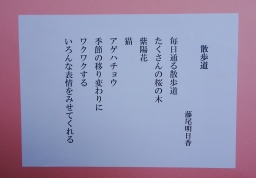 散歩道
藤尾明日香
毎日通る散歩道
たくさんの桜の木
紫陽花
猫
アゲハチョウ
季節の移り変わりに
ワクワクする
いろんな表情をみせてくれる